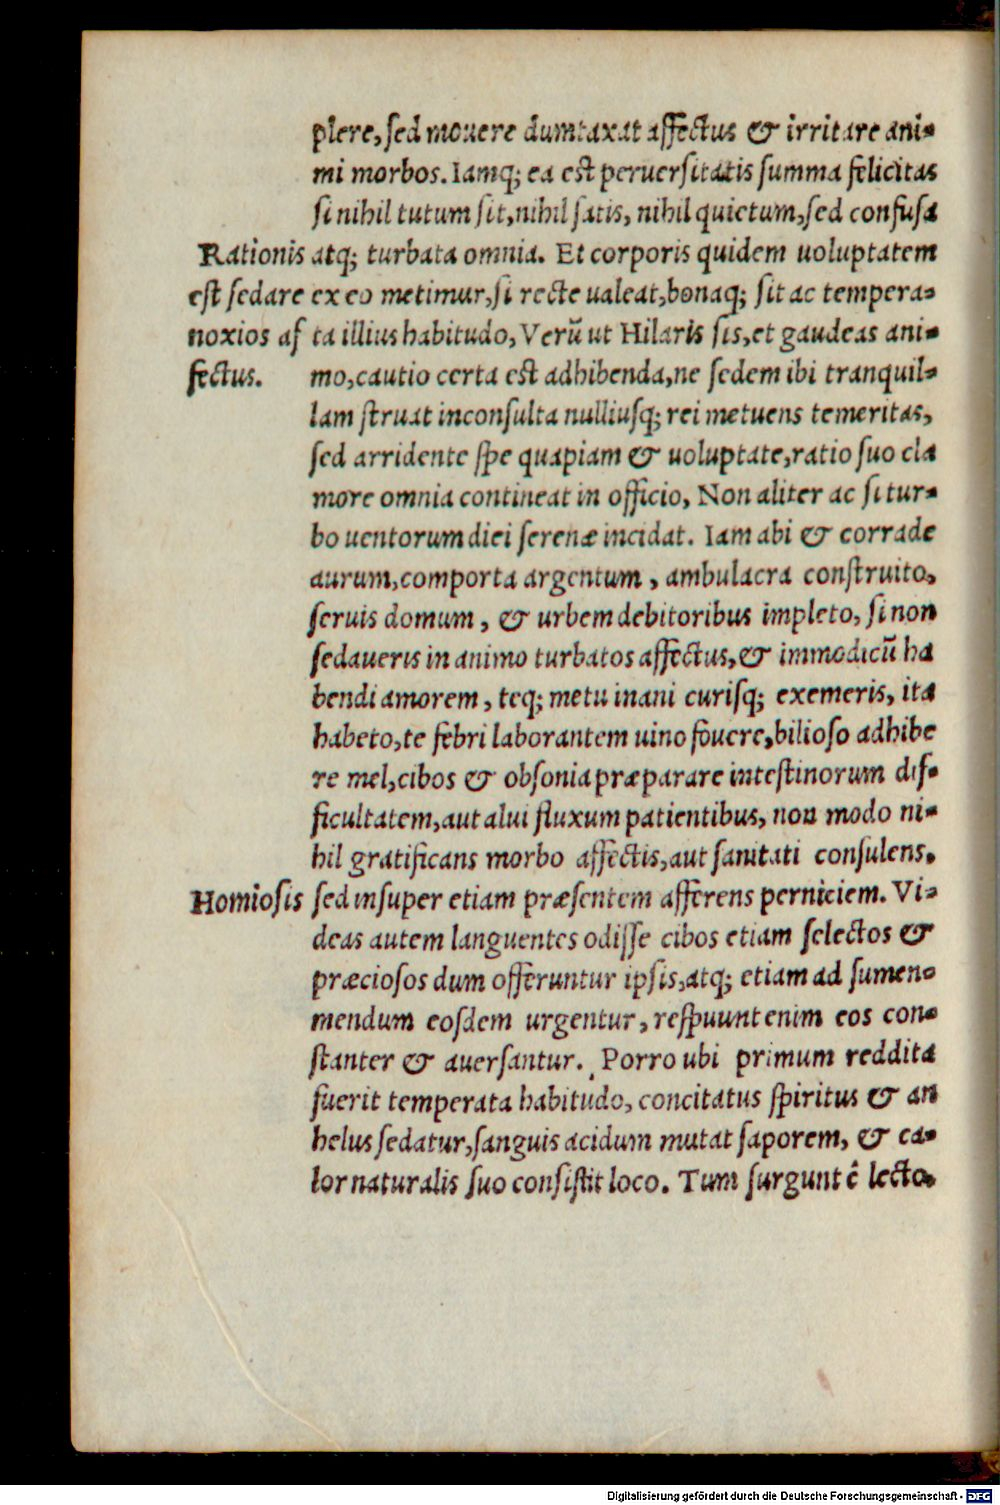 plere, sed mouere dumtaxat affectus & irritare ani-
mi morbos. Iamq; ea est peruersitatis summa felicitas
si nihil tutum sit, nihil satis, nihil quietum, sed confusa
Rationis atq; turbata omnia. Et corporis quidem uoluptatem
est sedare ex eo metimur, si recte ualeat, bonaq; sit ac tempera-
noxios af ta illius habitudo, Verū ut Hilaris sis, et gaudeas ani-
fectus. mo, cautio certa est adhibenda, ne sedem ibi tranquil-
lam struat inconsulta nulliusq; rei metuens temeritas,
sed arridente spe quapiam & uoluptate, ratio suo cla
more omnia contineat in officio, Non aliter ac si tur-
bo uentorum diei serenæ incidat. Iam abi & corrade
aurum, comporta argentum, ambulacra construito,
seruis domum, & urbem debitoribus impleto, si non
sedaueris in animo turbatos affectus, & immodicū ha
bendi amorem, teq; metu inani curisq; exemeris, ita
habeto, te febri laborantem uino fouere, bilioso adhibe
re mel, cibos & obsonia præparare intestinorum dif-
ficultatem, aut alui fluxum patientibus, non modo ni-
hil gratificans morbo affectis, aut sanitati consulens.
Homiosis sed insuper etiam præsentem afferens perniciem. Vi-
deas autem languentes odisse cibos etiam selectos &
præciosos dum offeruntur ipsis, atq; etiam ad sumen-
mendum eosdem urgentur, respuunt enim eos con-
stanter & auersantur. Porro ubi primum reddita
fuerit temperata habitudo, concitatus spiritus & an
helus sedatur, sanguis acidum mutat saporem, & ca-
lor naturalis suo consistit loco. Tum surgunt ê lecto,
Digitalisierung gefördert durch die Deutsche Forschungsgemeinschaft - DFG